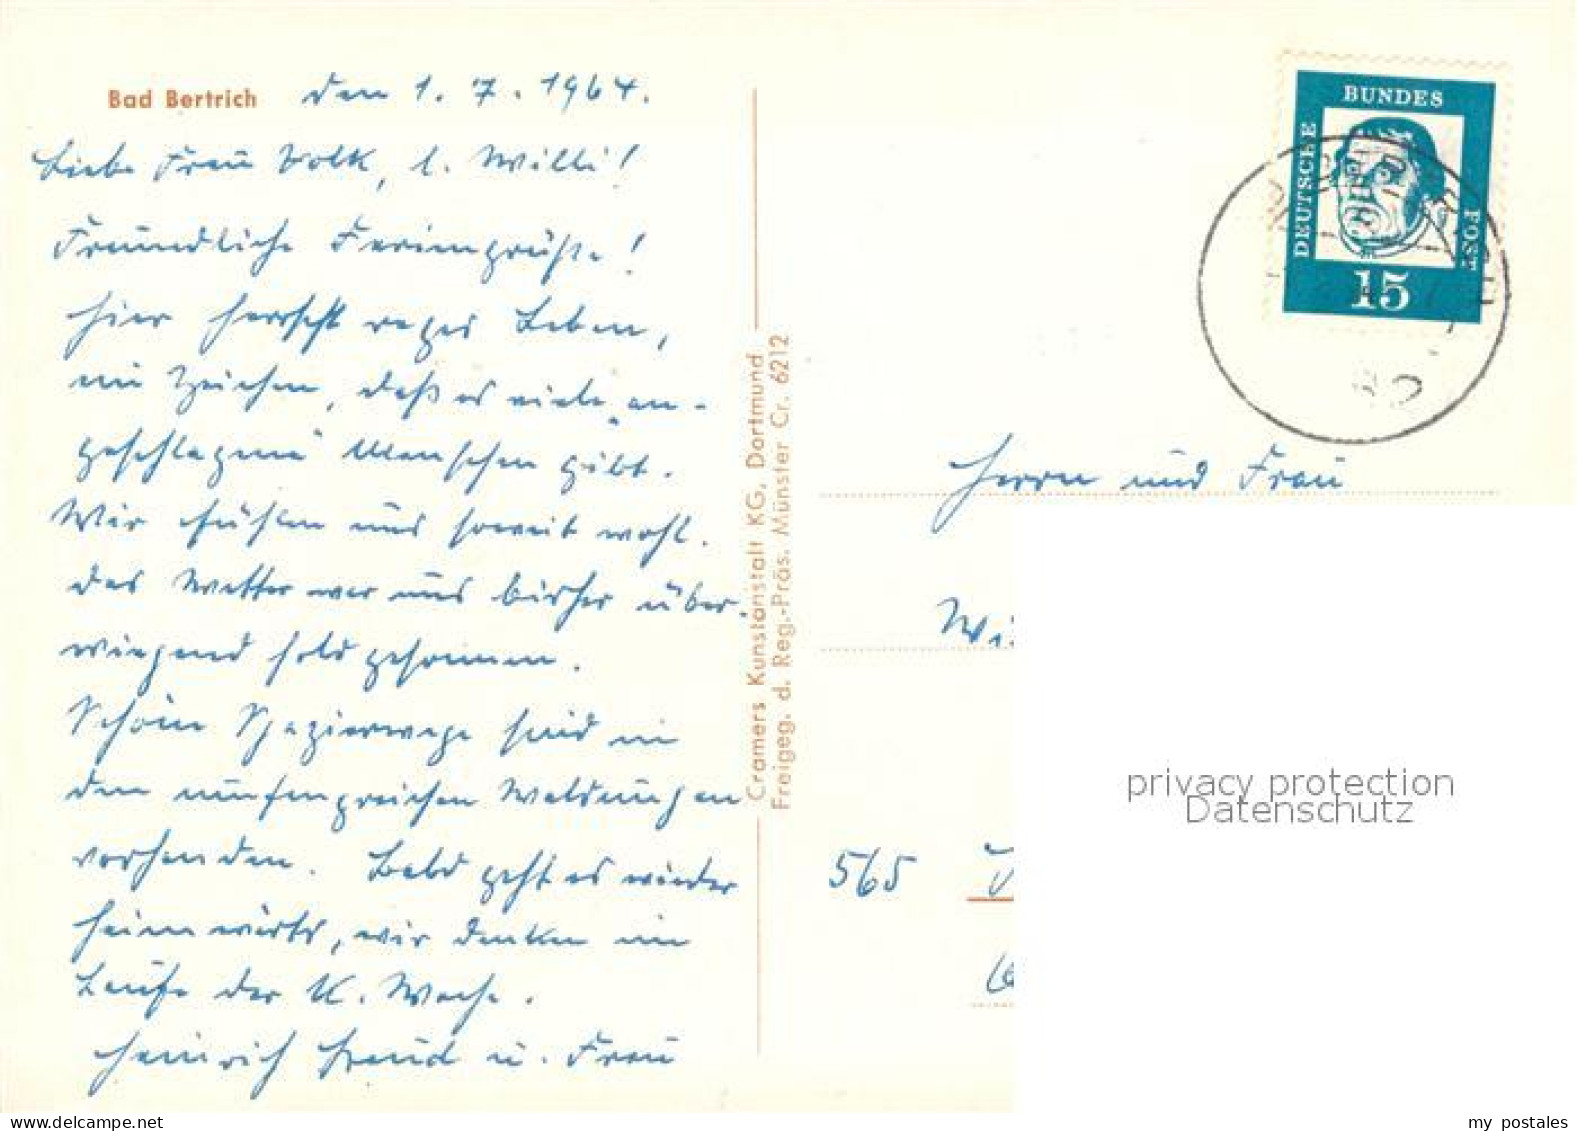 Bad Bertrich den 1. 7. 1964.
Liebe Frau Volk, l. Willi!
Freundliche Feriengrüße!
Hier herrscht reges Leben,
ein Zeichen, daß es viele "an-
geschlagene" Menschen gibt.
Wir fühlen uns soweit wohl.
Das Wetter war uns bisher über-
wiegend hold gesonnen.
Schöne Spazierwege sind in
den umfangreichen Waldungen
vorhanden. Bald geht es wieder
heimwärts, wir denken im
Laufe der K. Woche.
Heinrich u. Frau
Cramers Kunstanstalt KG, Dortmund
Freigeg. d. Reg.-Präs. Münster Cr. 6212
DEUTSCHE BUNDES POST
15
Herrn und Frau
Wi
565
privacy protection
Datenschutz
my postales